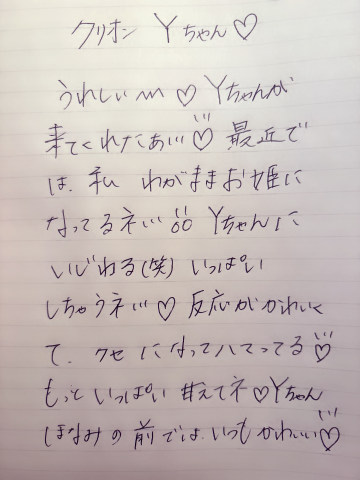 クリオン Yちゃん♡
うれしい〰♡ Yちゃんが
来てくれたあ!!!♡ 最近で
は、私 わがままお姫に
なってるネ!!! Yちゃんに
いじわる(笑) いっぱい
しちゃうネ!!!♡ 反応がかわいく
て、クセになってハマってる♡
もっといっぱい 甘えてネ♡Yちゃん
ほなみの前では、いつもかわいい♡